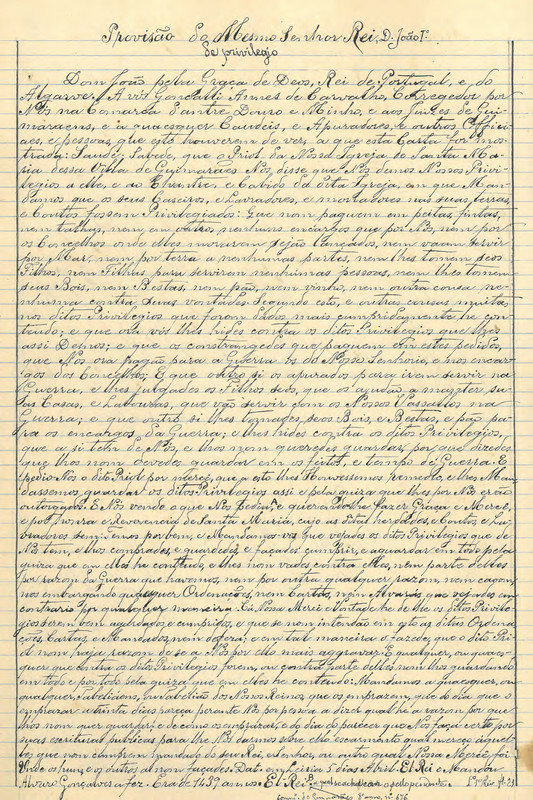 Provisão do Mesmo Senhor Rei, D. João Iº
de privilegio
Dom João pella Graça de Deos, Rei de Portugal, e do
Algarve. A vós Gonçallo Annes de Carvalho, Corregedor por
Nós na Comarca d'antre Douro e Minho, e aos Juizes de Gui-
maraens, e a quaesquer Coudeis, e Apuradores, e outros Offici-
aes, e pessoas, que esto houverem de ver, a que esta Carta for mos-
trada: Saude; Sabede, que o Priol da Nossa Igreja de Santa Ma-
ria dessa Villa de Guimaraens Nós, disse que Nós demos Nossos Privi-
legios a elle, e ao Chantre, e Cabido da dita Igreja, em que Man-
damos que os seus Caseiros, e Lavradores, e moradores nas suas terras,
e Coutos fossem Privilegiados: Que nom paguem em peitas, fintas,
nem talhas, nem em outros nenhuns encargos que por Nós, nem por
os Concelhos onde elles morarem sejão lançados, nem vaam servir
por Mar, nem por terra a nenhumas partes, nem lhes tomem seos
Filhos, nem Filhas para servirem nenhumas pessoas, nem lhes tomem
seus Bois, nem Bestas, nem pão, nem vinho, nem outra cousa ne-
nhuma contra suas vontades. Segundo esto, e outras cousas muitas
nos ditos Privilegios que forem dados mais cumpridamente he con-
teudo; e que ora vós lhes hides contra os ditos Privilegios que lhes
assi Demos; e que os constrangedes que paguem em estes pedidos,
que Nós ora pagão para a Guerra os do Nosso Senhorio, e nos encar-
gos dos Concelhos: E que outro si os apurades para irem servir na
Guerra, e lhes julgades os Filhos seos, que os ajudão a manter su-
as Casas, e Labouras, que vão servir com os Nossos Vassallos na
Guerra; e que outro si lhes tomades, seos Bois, e Bestas, e pão pa-
ra os encargos da Guerra; e lhes hides contra os ditos Privilegios,
que a si tem de Nós, e lhos nom queredes guardar, por que dizedes
que lhos nom devedes guardar em os feitos, e tempo de Guerra. E
pedio Nós o dito Priol por mercê, que a esto lhes Houvessemos remedio, e lhes Man-
dassemos guardar os ditos Privilegios assi e pela guiza que lhes por Nós erão
outorgados. E Nós vendo o que Nos pedia, e querendo lhe fazer Graça e Mercê,
e por honra e Reverencia de Santa Maria, cujo as ditas herdades, e Coutos, e La-
bradores sem Temos por bem, e Mandamos vos que vejades os ditos Privilegios que de
Nós tem, e lhos comprades, e guardedes, e façades cumprir, e aguardar em todo pela
guiza que em elles he contheudo, e lhes nom vades contra elles, nem parte delles
por razom da Guerra que havemos, nem por outra qualquer razom, nem cajom,
nos embargando quaesquer Ordenações, nem Cartas, nem Alvarás que vejades em
contrario por qualquer maneira. Ca Nossa Mercê e Vontade he de lhe os ditos Privile-
gios serem bem aguardados e cumpridos, e que se nom intendão em esto as ditas Ordena-
ções, Cartas, e Mandados, nom doffera; e em tal maneira o fazede, que o dito Pri-
ol nom haja razom de se a Nós por ello mais aggravar. E qualquer, ou quaes-
quer que contra os ditos Privilegios forem, ou contra parte delles, nom lhos guardando
em todo e por todo pela guiza que em elles he contendo: Mandamos a quaesquer, ou
qualquer Tabelliom, ou Tabelliões dos Nossos Reinos, que os emprazem, que do dia que o
emprazar a trinta dias pareça perante Nós por pessoa a dizer qual he a razom por que
lhos nom quer guardar; e de como os emprazar, e do dia do parecer que Nos faça certo por
suas escrituras publicas para lhe Nós darmos sobre ello escarmento qual mercê for da-
quelle que nom comprem mandado de seu Rei, e Senhor, ou outro qual Nossa Mercê for.
Unde os huns, e os outros al nom façades. Dat. em Leiria 5 dias Abril. El Rei o Mandou
Alvaro Gonçalves a fez. Era de 1437 annos. El Rei.